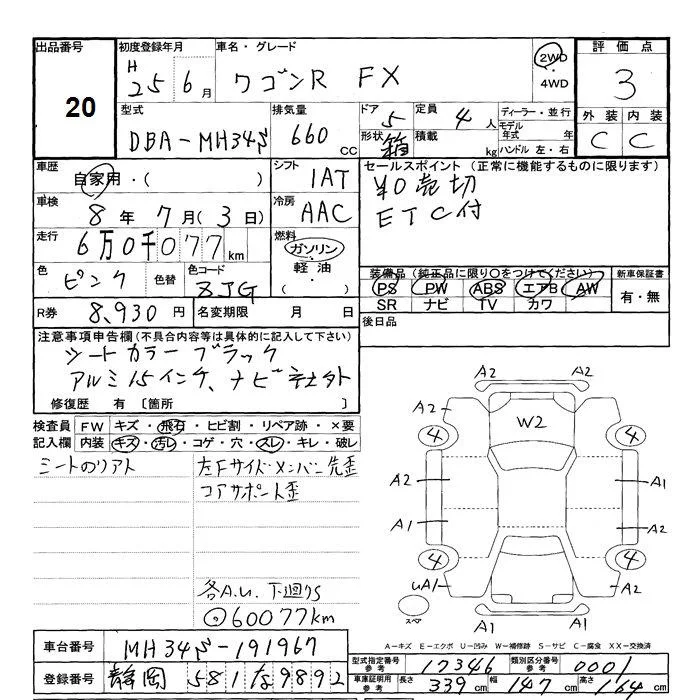 出品番号 初度登録年月 車名・グレード 評価点
20 H25年6月 ワゴンR FX 2WD 3
4WD
型式 排気量 ドア 5 定員 4人 ディーラー・並行 外装 内装
DBA-MH34S 660cc 形状 箱 積載 kg モデル年式 年 C C
ハンドル 左・右
車歴 シフト セールスポイント (正常に機能するものに限ります)
自家用・( ) 1AT ¥0売切
車検 冷房 ETC付
8年 7月(3日) AAC
走行 燃料
6万0千077km ガソリン
軽油・( )
色 ピンク 色替 色コード ZJG
装備品 (純正品に限り○をつけてください) 新車保証書
PS PW ABS エアB AW 有・無
SR ナビ TV カワ
R券 8,930円 名変期限 月 日 後日品
注意事項申告欄(不具合内容等は具体的に記入して下さい)
シートカラー ブラック
アルミ15インチ、ナビ
修復歴 有 〔箇所 〕
検査員 FW キズ・飛石・ヒビ割・リペア跡・×要
記入欄 内装 キズ・汚レ・コゲ・穴・スレ・キレ・破レ
左Fサイドメンバー先歪
コアサポート歪
各A.U. 下廻りS
60077km
A2 A2
A2 W2 A2
4 4
A2 A1
A1 A2
4 4
UA1 A2
スペア A1 A1
A-キズ E-エクボ U-凹み W-補修跡 S-サビ C-腐食 XX-交換済
車台番号 MH34S-191967
型式指定番号 参考 17346 類別区分番号 参考 0001
登録番号 静岡 581 な 9892
車庫証明用 参考 長さ 339cm 幅 147cm 高さ 164cm